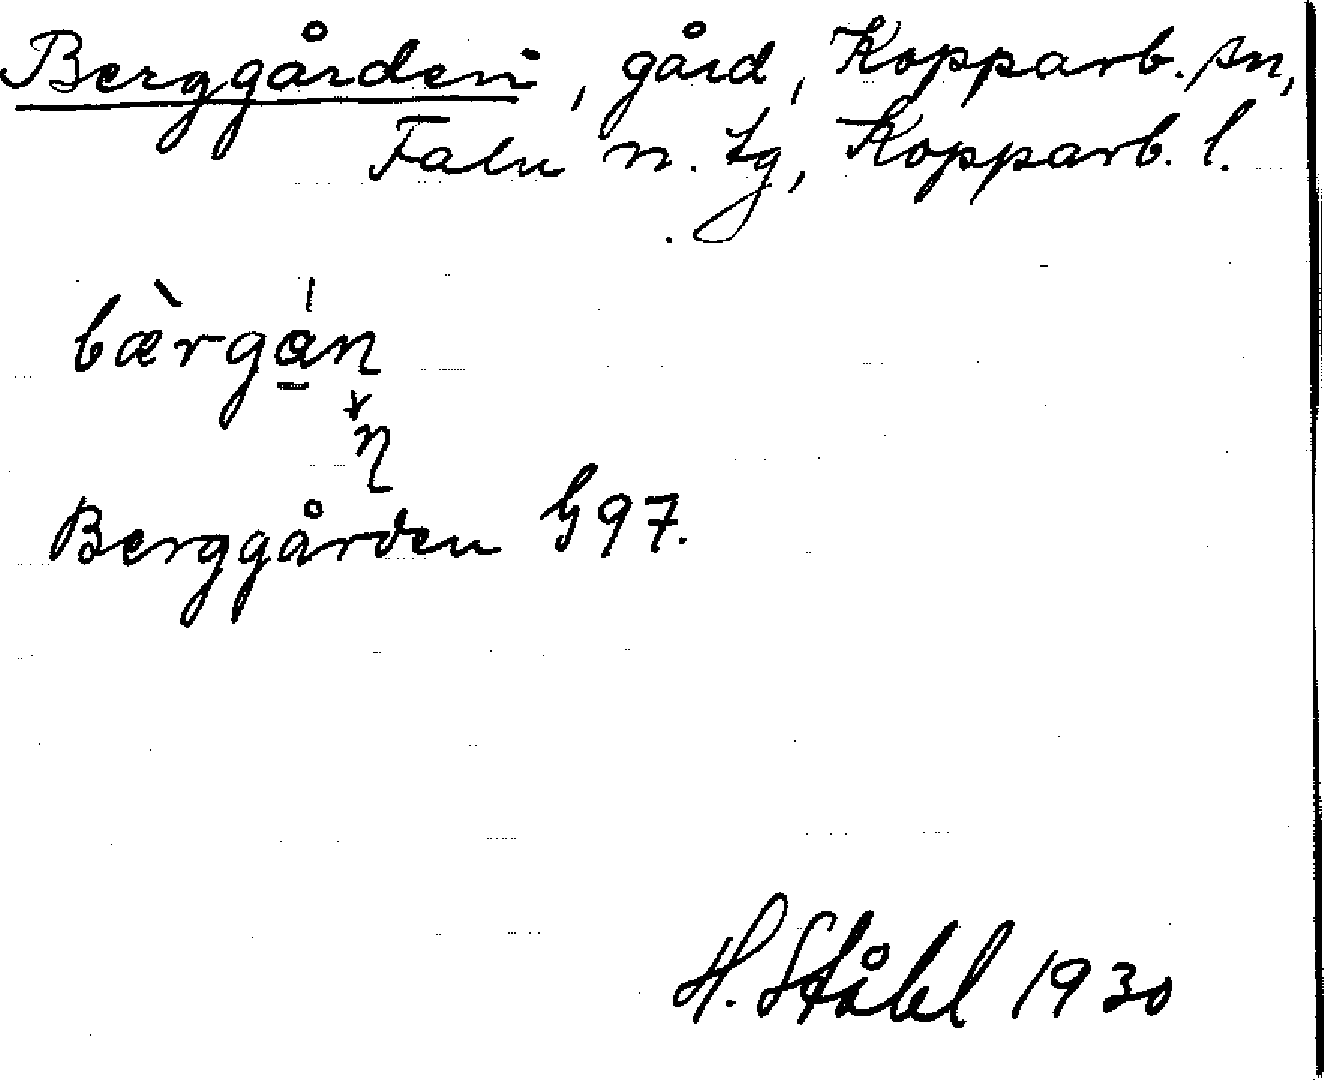 Berggården, gård, Kopparb. sn,
Falu n. tg, Kopparb. l.
bæ̀rgа̱́n
n
Berggården G97.
H. Ståhl 1930